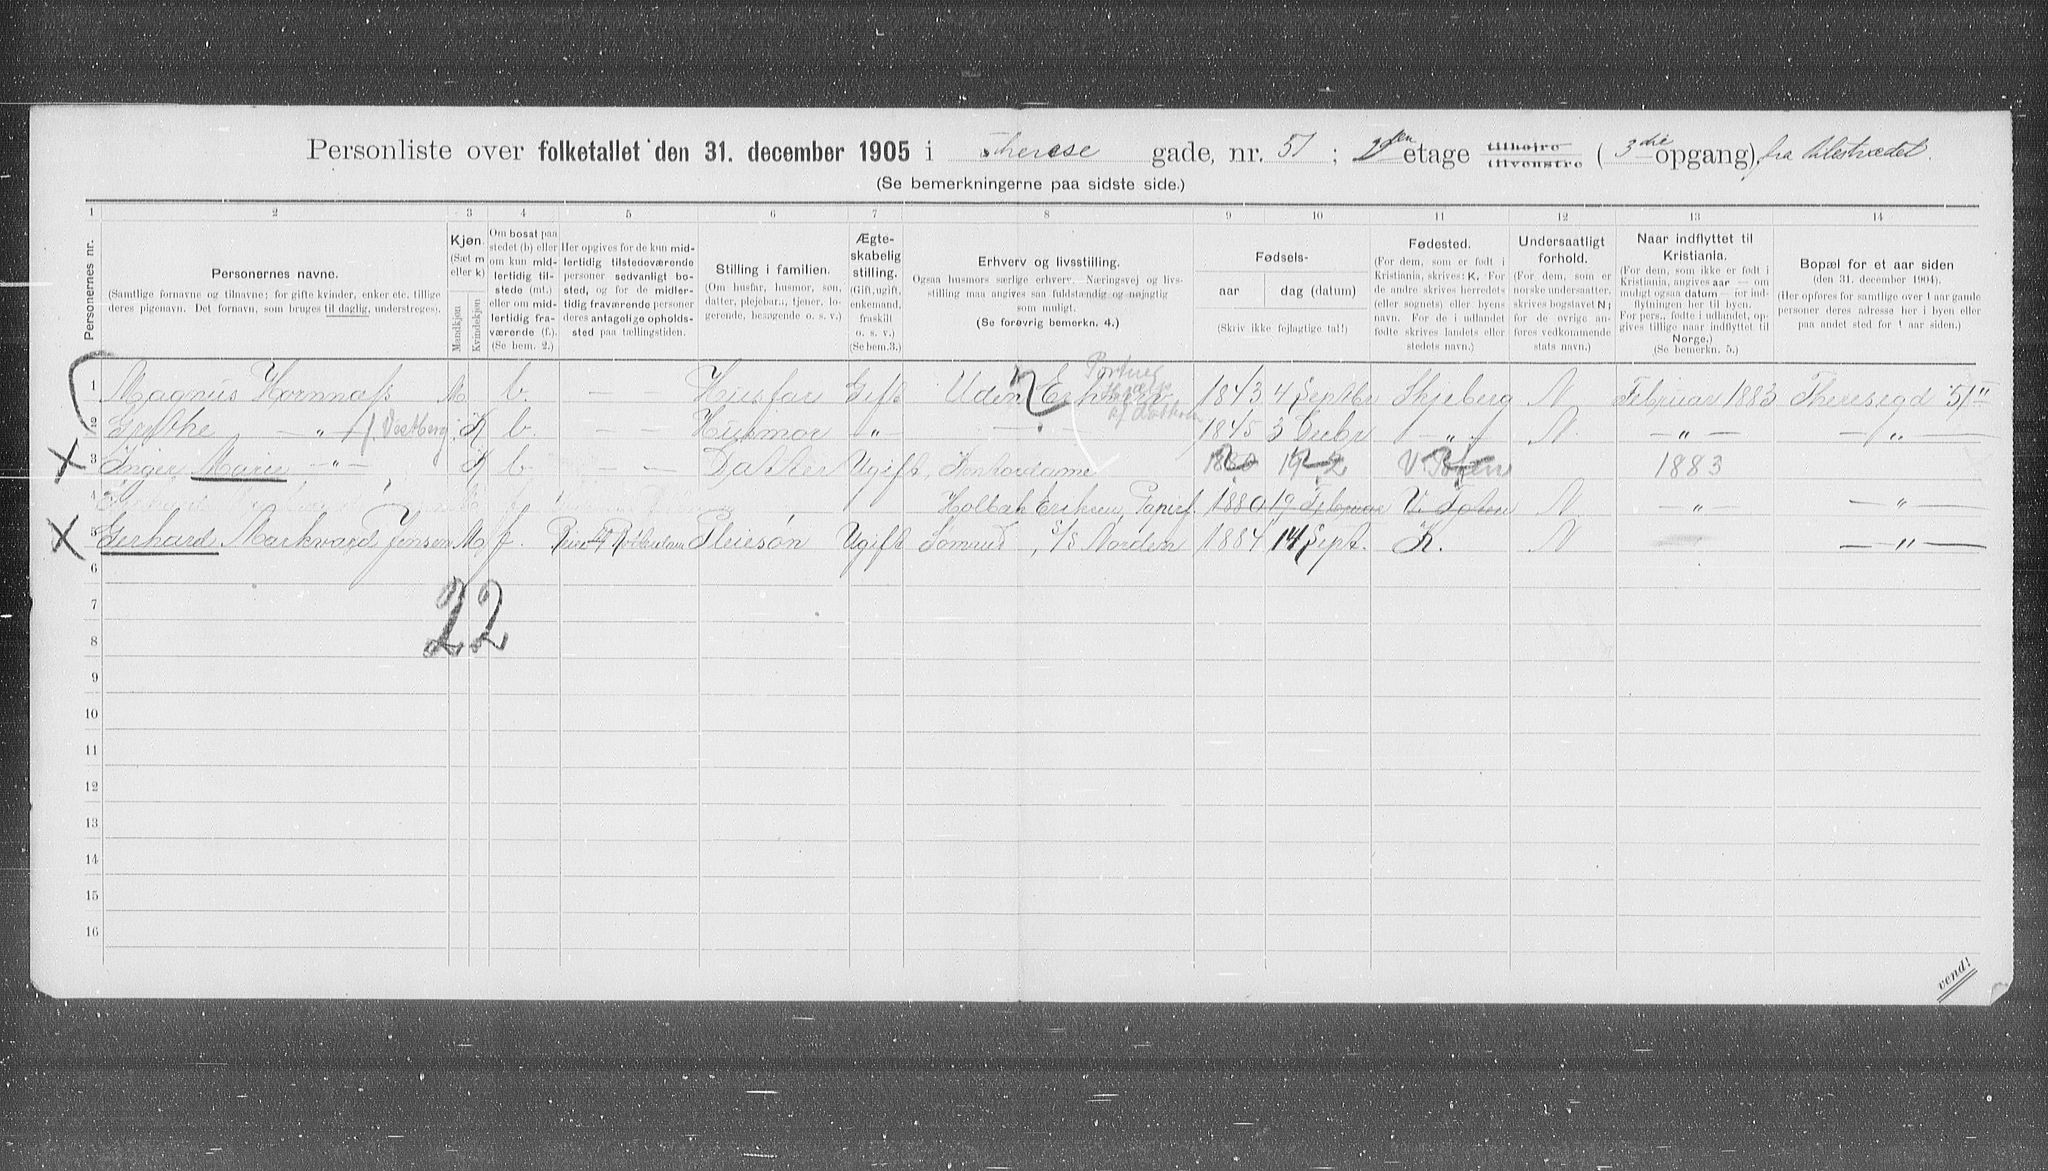 Personliste over folketallet den 31. december 1905 i Therese gade, nr. 51; 2den etage tilhøjre tilvenstre (3die opgang), fra Ulestrædet.
(Se bemerkningerne paa sidste side.)
1 2 3 4 5 6 7 8 9 10 11 12 13 14
Personernes nr.
Personernes navne.
(Samtlige fornavne og tilnavne; for gifte kvinder, enker etc. tillige
deres pigenavn. Det fornavn, som bruges til daglig, understreges).
Kjøn.
(Sæt m
eller k)
Mandkjøn
Kvindekjøn
Om bosat paa
stedet (b) eller
om kun mid-
lertidig til-
stede (mt.)
eller om mid-
lertidig fra-
værende (f.).
(Se bem. 2.)
Her opgives for de kun mid-
lertidig tilstedeværende
personer sedvanligt bo-
sted, og for de midler-
tidig fraværende personer
deres antagelige opholds-
sted paa tællingstiden.
Stilling i familien.
(Om husfar, husmor, søn,
datter, plejebar., tjener, lo-
gerende, besøgende o. s. v.)
Ægte-
skabelig
stilling.
(Gift, ugift,
enkemand,
fraskilt
o. s. v.)
(Se bem. 3.)
Erhverv og livsstilling.
Ogsaa husmors særlige erhverv. Næringsvej og livs-
stilling maa angives saa fuldstændig og nøjagtig
som muligt.
(Se forøvrig bemerkn. 4.)
Fødsels-
aar
dag (datum)
(Skriv ikke fejlagtige tal!)
Fødested.
(For dem, som er født i
Kristiania, skrives: K. For
de andre skrives herredets
(eller sognets) eller byens
navn. For de i udlandet
fødte skrives landets eller
stedets navn.)
Undersaatligt
forhold.
(For dem, som er
norske undersaatter,
skrives bogstavet N;
for de øvrige an-
føres vedkommende
stats navn.)
Naar indflyttet til
Kristiania.
(For dem, som ikke er født i
Kristiania, angives aar — om
mudigt ogsaa datum — for ind-
flytningen her til byen.
For pers., fødte i udlandet, op-
gives tillige naar indflyttet til
Norge.)
(Se bemerkn. 5.)
Bopæl for et aar siden
(den 31. december 1904).
(Her opføres for samtlige over 1 aar gamle
personer deres adresse her i byen eller
paa andet sted for 1 aar siden.)
1 Magnus Hornnæss M. b. — — Husfar Gift Uden Erhverv 1843 4 Septbr Skjeberg N Februar 1883 Theresegd 51 II
2 Grethe — " — f. Vestberg K b. — — Husmor — " — — — 1845 3 Decbr — " — N. — " — — " —
3 Inger Marie — " — K b — — Datter Ugift, Kontordame 1880 19-2 V. Toten 1883
4 Holbæk Eriksen, Papirf. 1880 19 Februar V. Toten N — " — — " —
5 Gerhard Markvard Jensen M f. Rotterdam Pleiesøn Ugift Sømand, S/S Norden 1884 14 Sept. K. N — " —
6
7
22
8
9
10
11
12
13
14
15
16
vend!